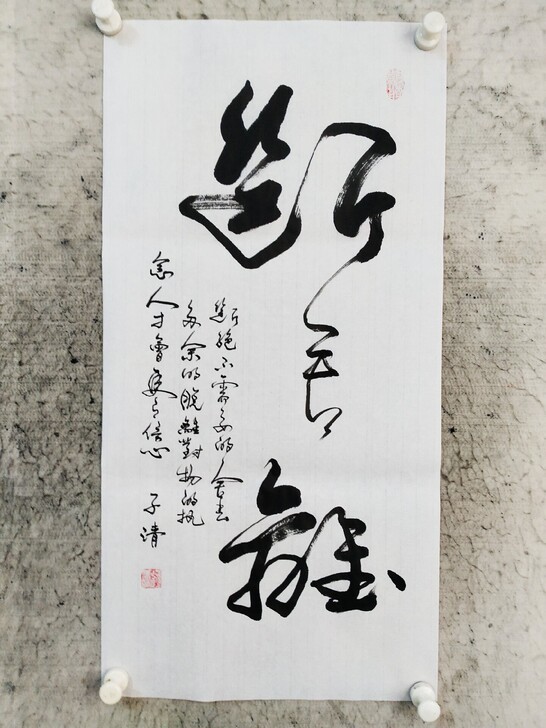 斷舍離
斷絕不需要的舍去
多余的脫離對物的执
念人才會更有信心 子清